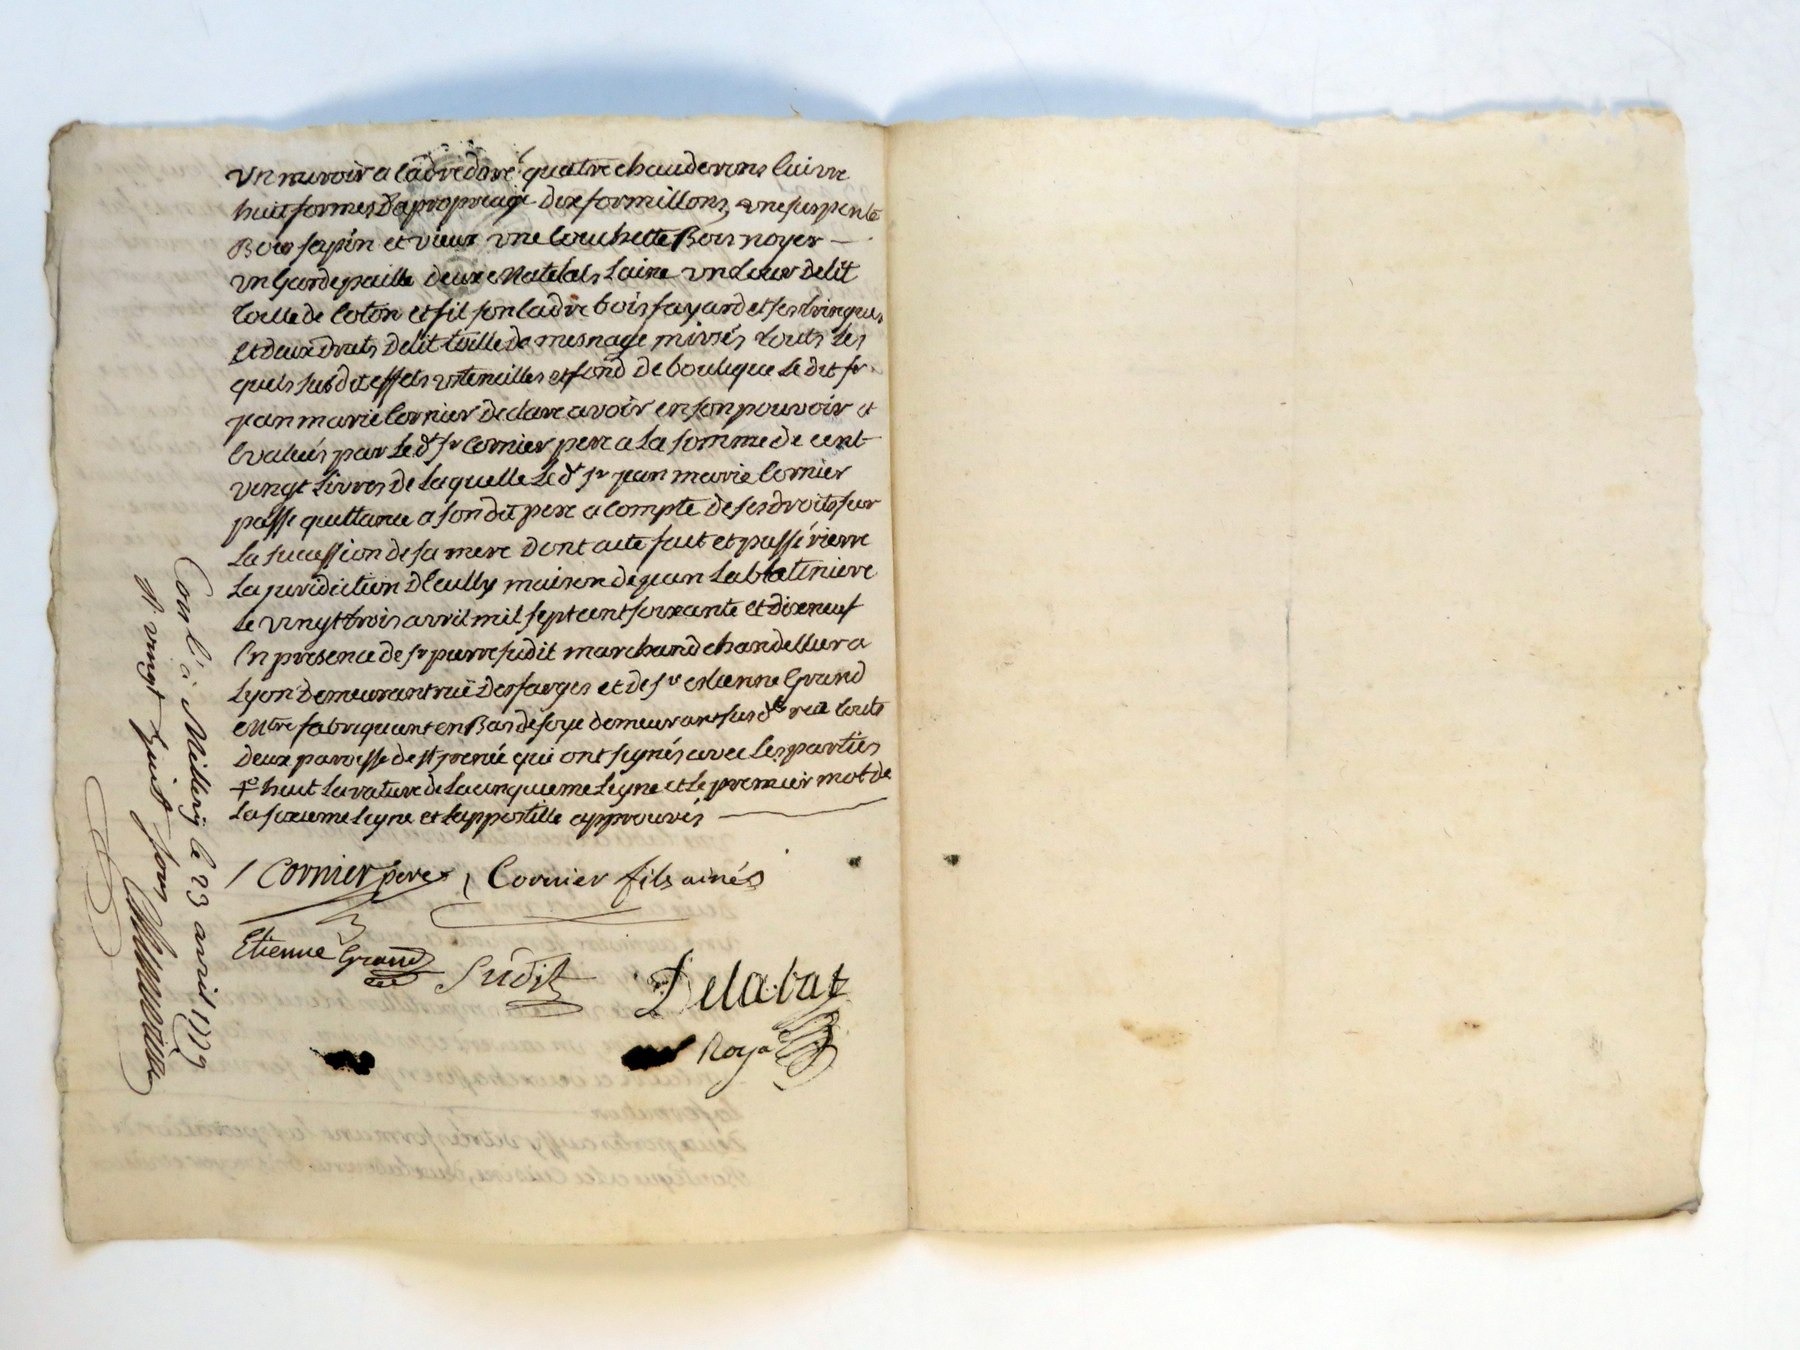 un miroir a cadre doré quatre chauderons cuivre
huit formes d'apropriage dix formillons, une suspente
Bois sapin et vieux une couchette Bois noyer —
un Gardepaille deux Matelats Laine un tour de lit
toille de coton et fil son cadre bois fayard et ses tringues
et deux draps de lit toille de mesnage mi usés touts les
quels susdit effets ustencilles et fond de boutique le dit sr
jean marie Cornier declare avoir en son pouvoir et
Evalués par Le dt sr Cornier pere a la somme de cent
vingt Livres de laquelle Le dt sr jean marie Cornier
passe quittance a son dit pere a compte de ses droits sur
La sucession de sa mere dont acte fait et passé riere
La juridiction d'Ecully maison de jean La
le vingt trois avril mil sept cent soixante et dixneuf
En presence de sr pierre sudit marchand chandellier a
Lyon demeurant ruë Desfarges et de sr etienne Grand
Mtre fabriquant en Bas de soye demeurant susd rue touts
deux paroisse de st jrenée qui ont signés avec Les parties
huit la rature de La cinquieme Ligne et Le premier mot de
La sixieme Ligne et l'appostille approuvés
Cornier pere Cornier fils ainés
Etienne Grand Sudit Delabat
Roya
Con l é a Millery le 23 avril 1779
R vingt huit sous